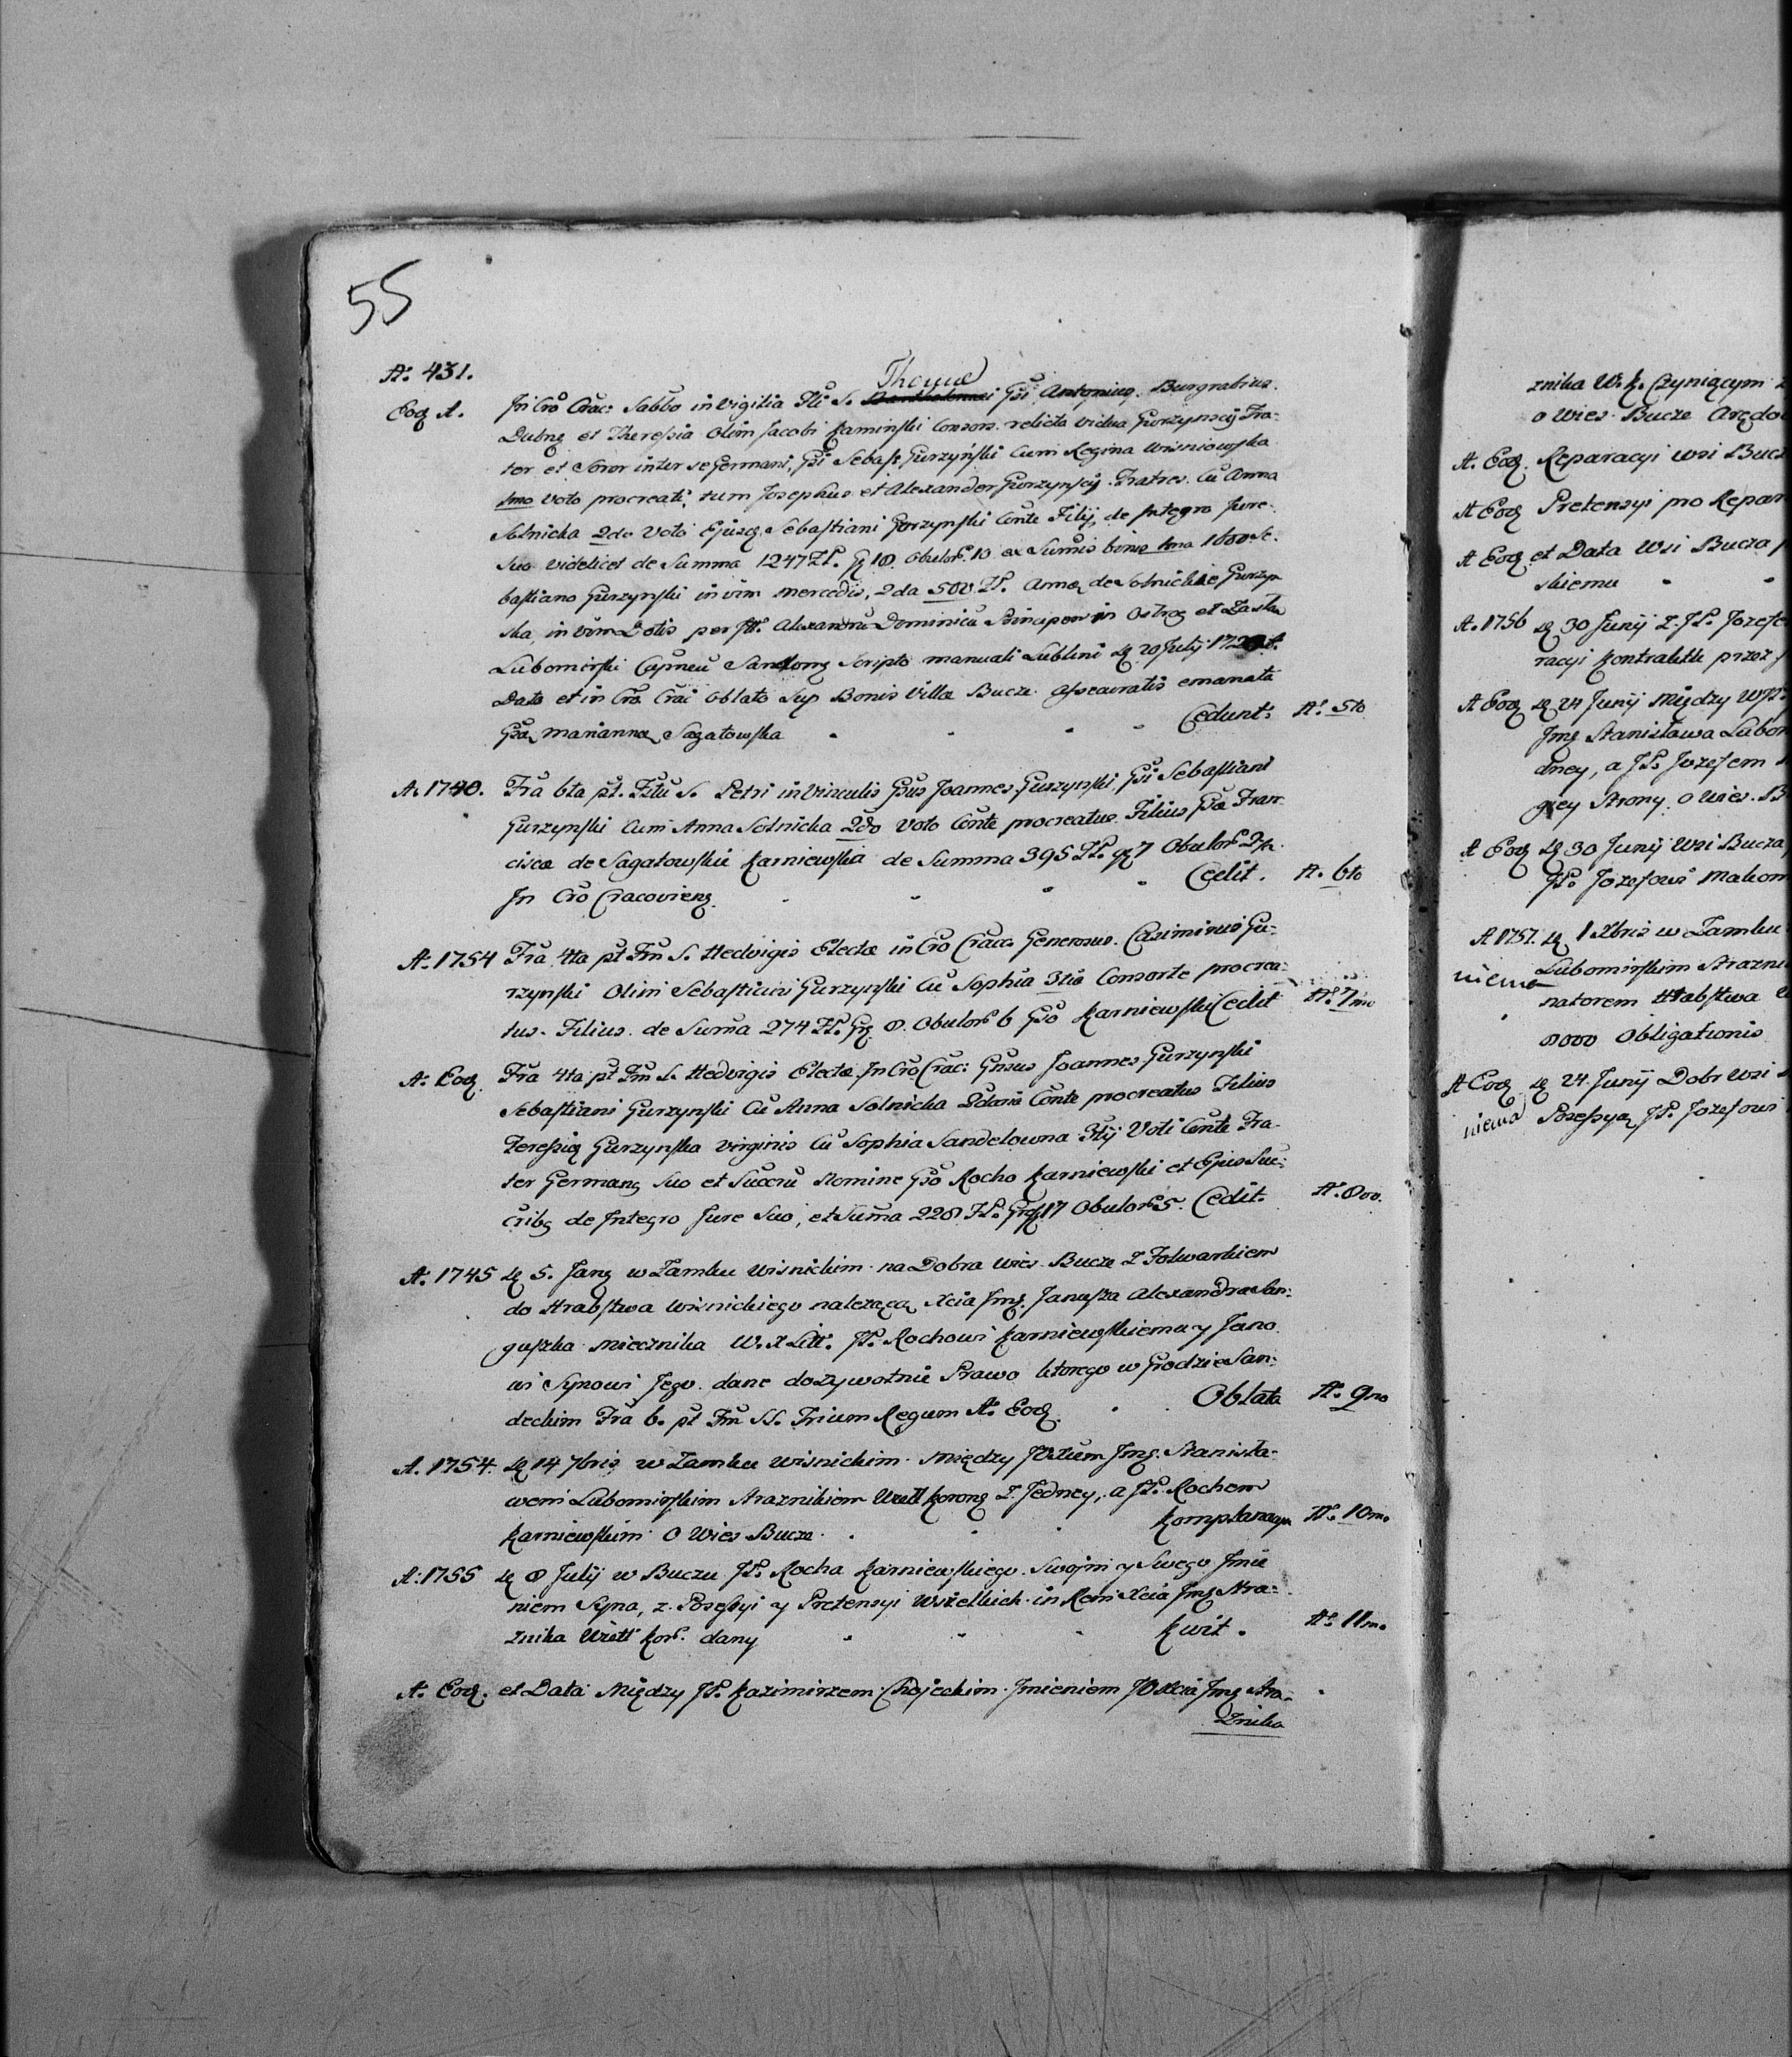 55
A: 431.
Eod A. In Crō Crac: Sabbo in Vigilia Sti S. Thomæ Gsi Antonius. Burgrabius.
Dubng et Theresia Olim Jacobi Kaminski Consors. relicta vidua Gurzynscij Fra-
ter et Soror inter se Germani, Gsi Sebast Gurzyński Cum Regina Wisniowska
1mo Voto procreati, tum Josephus et Alexander Gurzynscij. Fratres. Cū Anna
Solnicka 2do Voto Ejusq Sebastiani Gorzynski Conte Filij, de Integro Jure.
Suo videlicet de Summa 1247 ZP. Gz 18. Obulor. 10 ex Sumis binis 1ma 1600. Se-
bastiano Gurzynski in vim mercedis, 2da 500 ZP. Annæ de Solnickie Gurzyn
ska in vim Dotis per Alexandrū Dominicū Principem in Ostrog et Zasław
Lubomirski Capneū Sandomg Scripto manuali Lublini 20 July
Dato et in Crō Crāi Oblato Sup Bonis Villæ Bucze. assecuratis emanata
Gsæ Mariannæ Sagatowska Cedunt: A: 5to
A. 1740. Fra 6ta pt. Fstū S. Petri in Vinculis Gsus Joannes Gurzynski, Gsi Sebastiani
Gurzynski Cum Anna Solnicka 2do Voto Conte procreatus. Filius Gsæ Fran
ciscæ de Sagatowskie Karniewska de Summa 395 ZP. gz 7 Obulor
In Crō Cracovieng. Cedit. A. 6to
A. 1754 Fra 4ta pt Fm S. Hedvigis Electæ in Crō Crac: Generosus. Casimirus Gu-
rzynski Olim Sebastiani Gurzynski Cū Sophia 3tia Consorte procrea-
tus. Filius. de Sum̄a 274 ZP. Gz. 8. Obulor 6 Gso Karniewski Cedit A: 7mo
A. Eod. Fra 4ta pt Fm S. Hedvigis Electæ In Crō Crac: Gnsus Joannes Gurzynski
Sebastiani Gurzynski Cū Anna Solnicka 2daria Conte procreatus Filius
Teresiæ Gurzynska virginis Cū Sophia Sandelowna 3tij Voti Conte Fra-
ter Germang Suo et Nomine Gso Rocho Karniewski et Ejus Suc:
cribg de Integro Jure Suo, et Suma 228 ZP. 17 Obulor 5. Cedit. A. 8vo.
A. 1745 5. Jang w Zamku Wisnickim. na Dobra Wies. Bucze Z Folwarkiem
do Hrabstwa Wisnickiego nalezącą Xcia Jmg. Janusza Alexandra San-
guszka Miecznika W. X Litt. JP. Rochowi Karniewskiemu y Jano
wi Synowi Jego. dane dozywotnie Prawo ktorego w Grodzie San-
deckim Fra 6. pt Fm SS. Trium Regum A. Eod. Oblata A. 9no
A. 1754. 14 7bris w Zamku Wisnickim. Między JOXciem Jmg. Stanisła-
wem Lubomirskim Straznikiem Wiell Korong Z. Jedney, a JP. Rochem
Karniewskim. O Wies Bucze. Komplanacya A. 10mo
A. 1755 8 Julij w Buczu JP. Rocha Karniewskiego. Swoim y Swego Jmie
niem Syna, z. Posessyi y Pretensyi Wszelkich. in Rem Xcia Jmg Stra-
znika Wiell Kor. dany Kwit. A. 11mo
A. Eod. et Data Między JP. Kazimirzem. Choieckim. Jmieniem JOXcia Jmg Stra-
znika
znika W. K. Czyniącym
o Wies. Bucze Arędo
A. Eod. Reparacyi wsi Bucz
A Eod Pretensyi pro Repar
A Eod et Data Wsi Bucza
skiemu
A. 1756 30 Junij Z. JP. Jozefe
racyi Kontraktu przez
A Eod 24 Junij Między
Jmg Stanisława Lubom
dney, a JP. Jozefem
giey Strony. o Wies. B
A Eod 30 Junij Wsi Bucza
JP. Jozefowi Makom
A 1757. 1 Xbris w Zamku
niema Lubomirskim Strazni
natorem Hrabstwa
8000 Obligationis
A Eod 24. Junij Dobr Wsi
niema Posessyą JP. Jozefowi